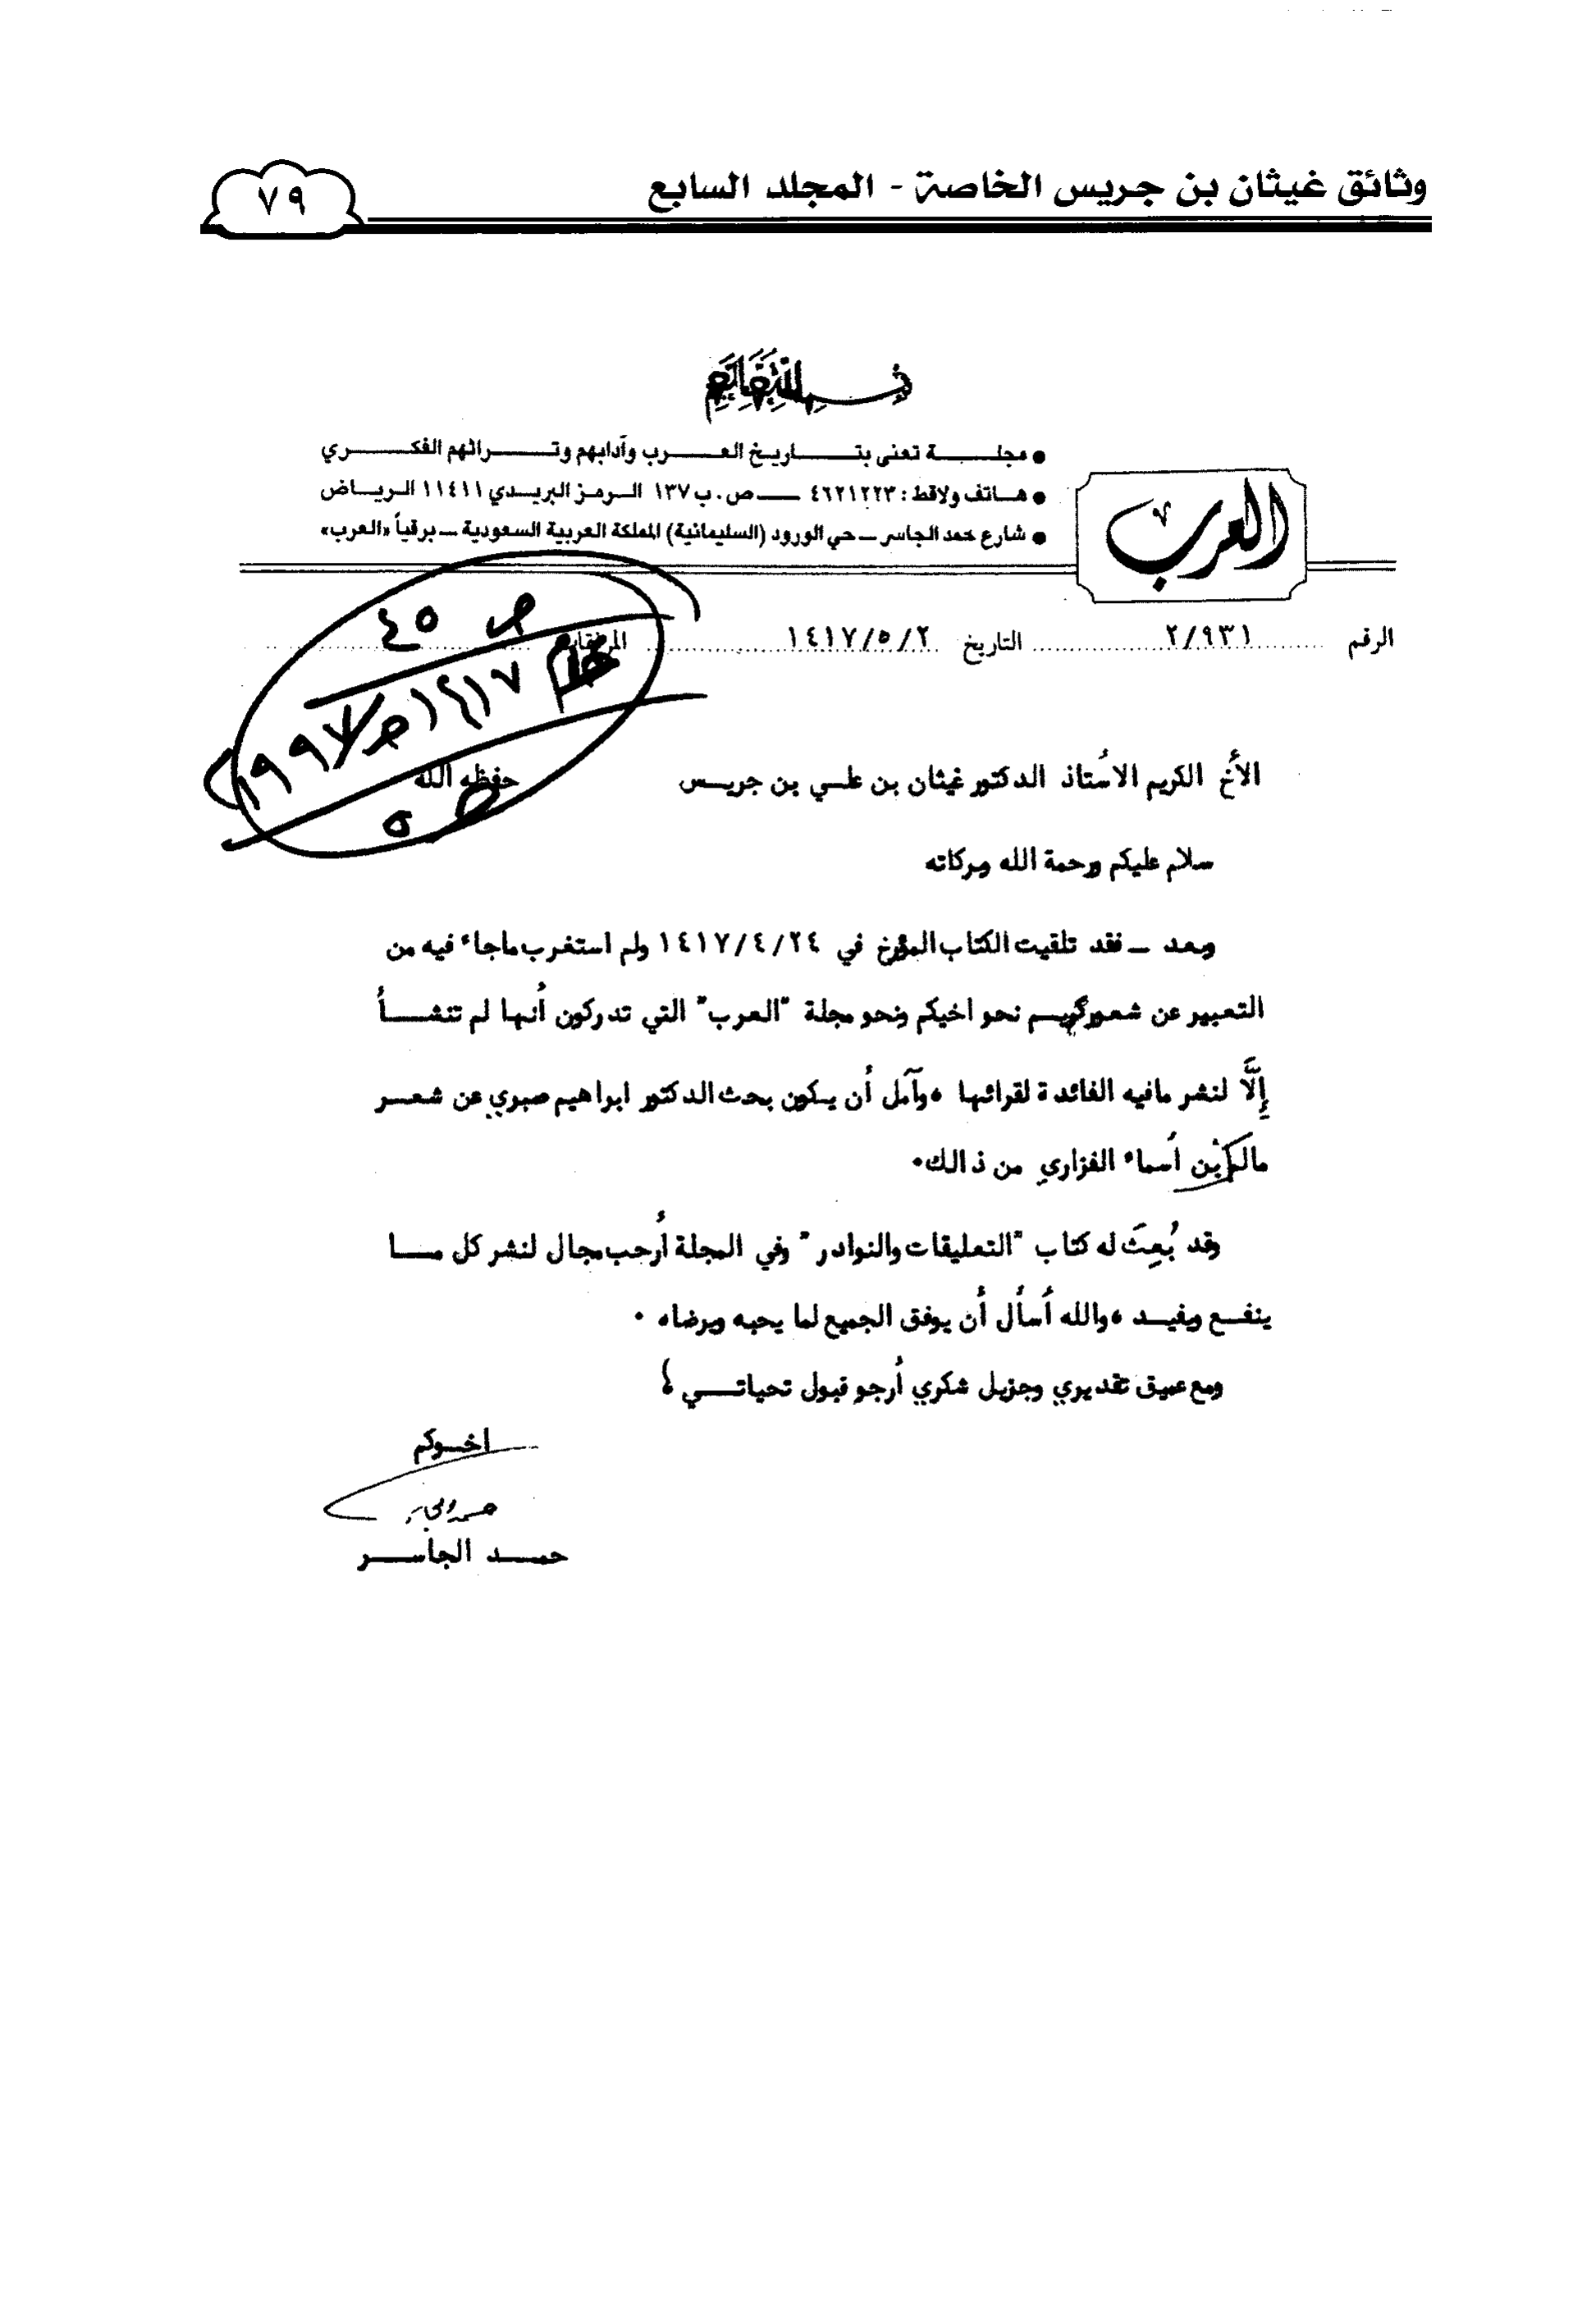 وثائق غيثان بن جريس الخاصة - المجلد السابع
٧٩
العرب
• مجلـــة تعنى بتـــاريخ العـــرب وآدابهم وتـــراثهم الفكـــري
• هـاتف ولاقط : ٤٦٢١٢٢٣ ــ ص . ب ١٣٧ الـرمـز البريـدي ١١٤١١ الـريـاض
• شارع حمد الجاسر ــ حي الورود (السليمانية) المملكة العربية السعودية ــ برقياً «العرب»
الرقم ٢/٩٣١ التاريخ ١٤١٧/٥/٢ المرفقات
ص ٤٥
١٤١٧هـ/١٩٩٧
ص ٥
الأخ الكريم الأستاذ الدكتور غيثان بن علـي بن جريـس حفظه الله
سلام عليكم ورحمة الله وبركاته
وبعـد ــ فقد تلقيت الكتاب المؤرخ في ١٤١٧/٤/٢٤ ولم استغرب ماجاء فيه من
التعبير عن شعوركريـم نحو اخيكم ونحو مجلة "العرب" التي تدركون أنها لم تنشـأ
إلَّا لنشر مافيه الفائدة لقرائها ، وآمل أن يكون بحث الدكتور ابراهيم صبري عن شعـر
مالك بْن أسماء الفزاري من ذالك.
وقد بُعِثَ له كتاب "التعليقات والنوادر" وفي المجلة أرحب مجال لنشر كل مـا
ينفـع ويفيـد ، والله أسأل أن يوفق الجميع لما يحبه ويرضاه .
ومع عميق تقديري وجزيل شكري أرجو قبول تحياتـي ،
اخـوكم
حمـد الجاسـر